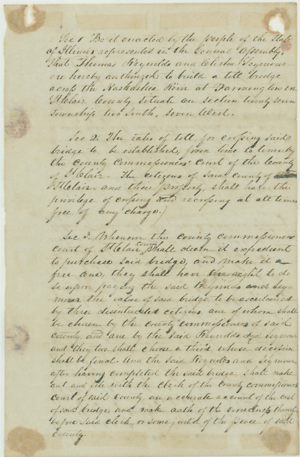 Sec 1 Be it enacted by the people of the State
of Illinois represented in the General Assembly,
That Thomas Reynolds and Seymour
are hereby authorized to build a toll bridge
across the Kaskaskia River at in
St Clair County situate on section twenty seven
Township two South, seven West.
Sec 2. The rates of toll for crossing said
bridge to be established, from time to time by
the County Commissioners' Court of the County
of St Clair. The citizens of said County of
St Clair and their property shall have the
privilege of crossing and recrossing at all times
free of any charge.
Sec 3. Whenever the county commissioners
court of St Clair shall deem it expedient
to purchase said bridge, and make it a
free one, they shall have the right to do
so upon paying the said Reynolds and Sey-
mour the value of said bridge to be ascertained
by three disinterested citizens one of whom shall
be chosen by the county commissioners of said
County, and one by the said Reynolds & Seymour
and they two shall choose a third whose decision
shall be final. And the said Reynolds and Seymour
after having completed the said bridge shall make
out and file with the Clerk of the County Commissioners
Court of said County an accurate account of the cost
of said bridge, and make oath of the correctness thereof
before said clerk, or some justice of the peace of said
County.